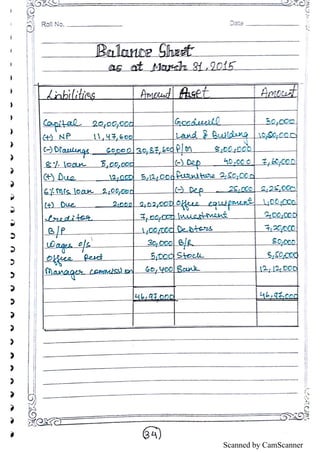 Roll No. Date
Balance Sheet
as at March 31, 2015
Liabilities Amount Asset Amount
Capital 20,00,000 Goodwill 30,000
(+) NP 11,47,600 Land & Building 10,50,000
(-) Drawings 60000 30,87,600 P/M 8,00,000
8% loan 5,00,000 (-) Dep 40,000 7,60,000
(+) Due 12,000 5,12,000 Furniture 2,50,000
6% M/s loan 2,00,000 (-) Dep 25,000 2,25,000
(+) Due 2,000 2,02,000 Office equipment 1,00,000
Creditor 7,00,000 Investment 2,00,000
B/P 1,00,000 Debtors 7,20,000
Wages o/s 30,000 B/R 50,000
Office Rent 5,000 Stock 3,50,000
Manager commission 60,400 Bank 12,12,000
46,97,000 46,97,000
(34)
Scanned by CamScanner